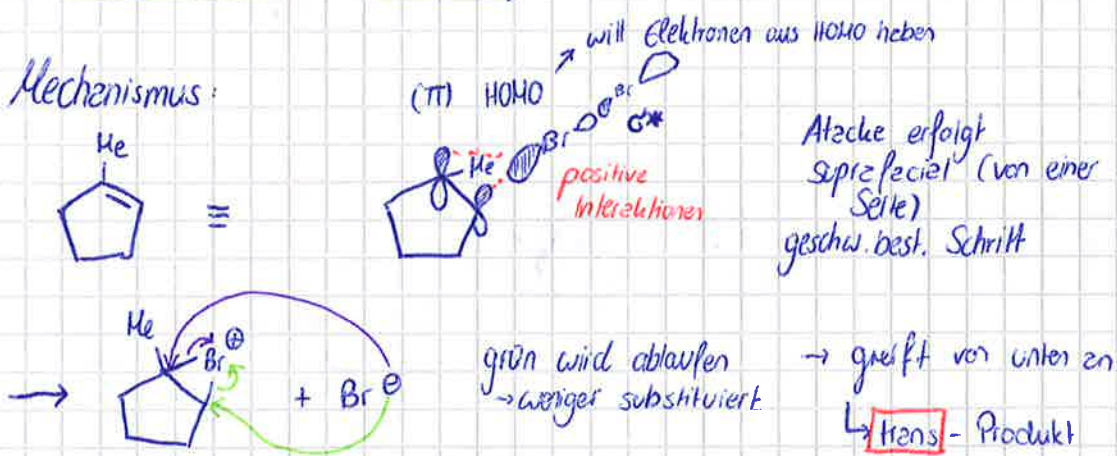 will Elektronen aus HOMO heben
Mechanismus:
(π) HOMO
Br
Br
σ*
Me
Me
≡
positive
Interaktionen
Atacke erfolgt
suprafacial (von einer
Seite)
geschw. best. Schritt
Me
Br ⊕
+ Br ⊖
grün wird ablaufen
→ weniger substituiert
→ greift von unten an
trans - Produkt